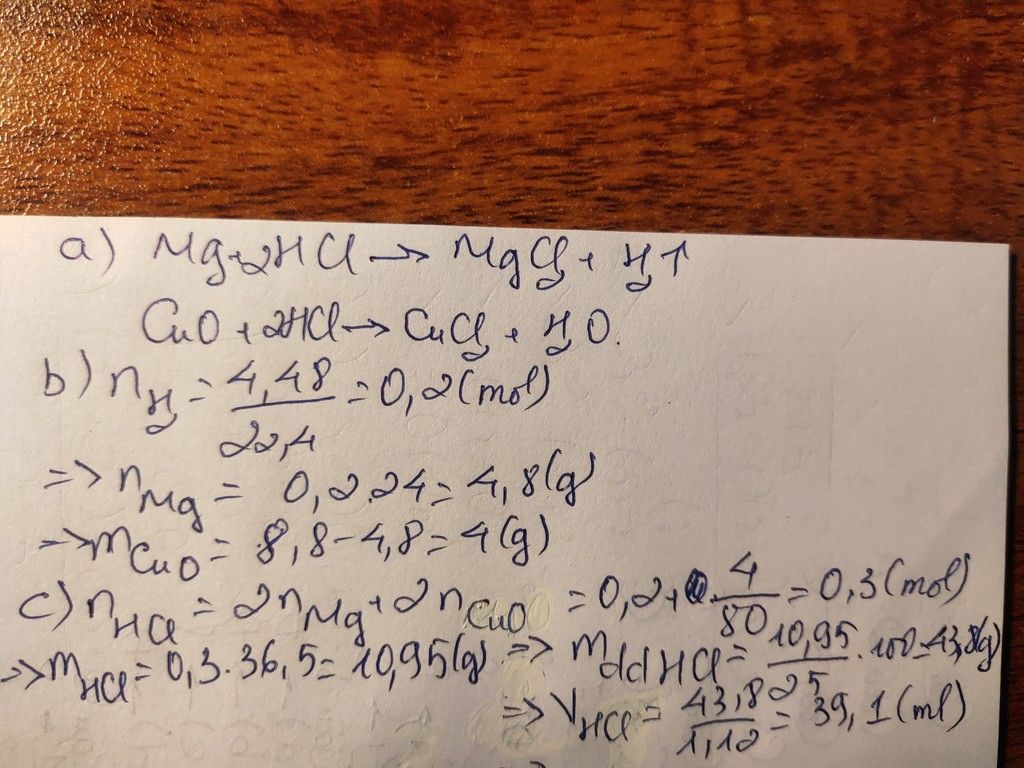 a) Mg+2HCl → MgCl₂ + H₂↑
CuO + 2HCl → CuCl₂ + H₂O.
b) n_H₂ = 4,48/22,4 = 0,2 (mol)
=> n_Mg = 0,2.24 = 4,8(g)
=> m_CuO = 8,8 - 4,8 = 4(g)
c) n_HCl = 2n_Mg + 2n_CuO = 0,2 + . 4/80 = 0,3(mol)
=> m_HCl = 0,3.36,5 = 10,95(g) => m_ddHCl = 10,95/25 . 100 = 43,8(g)
=> V_HCl = 43,8/1,12 = 39,1(ml)